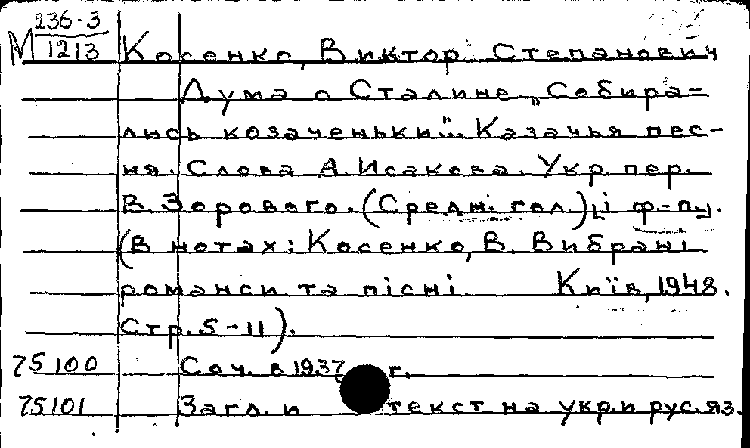 М 236-3
1213 Косенко, Виктор Степанович
Дума о Сталине „Собира-
лись козаченьки". Казачья пес-
ня. Слова А. Исакова. Укр. пер.
В. Зорового. (Средн. гол.) ц ф-пц.
(В нотах: Косенко, В. Вибрані
романси та пісні Київ, 1948.
Стр. 5-11).
75100 Соч. в 1937 г.
75101 Загл. и текст на укр. и рус. яз.